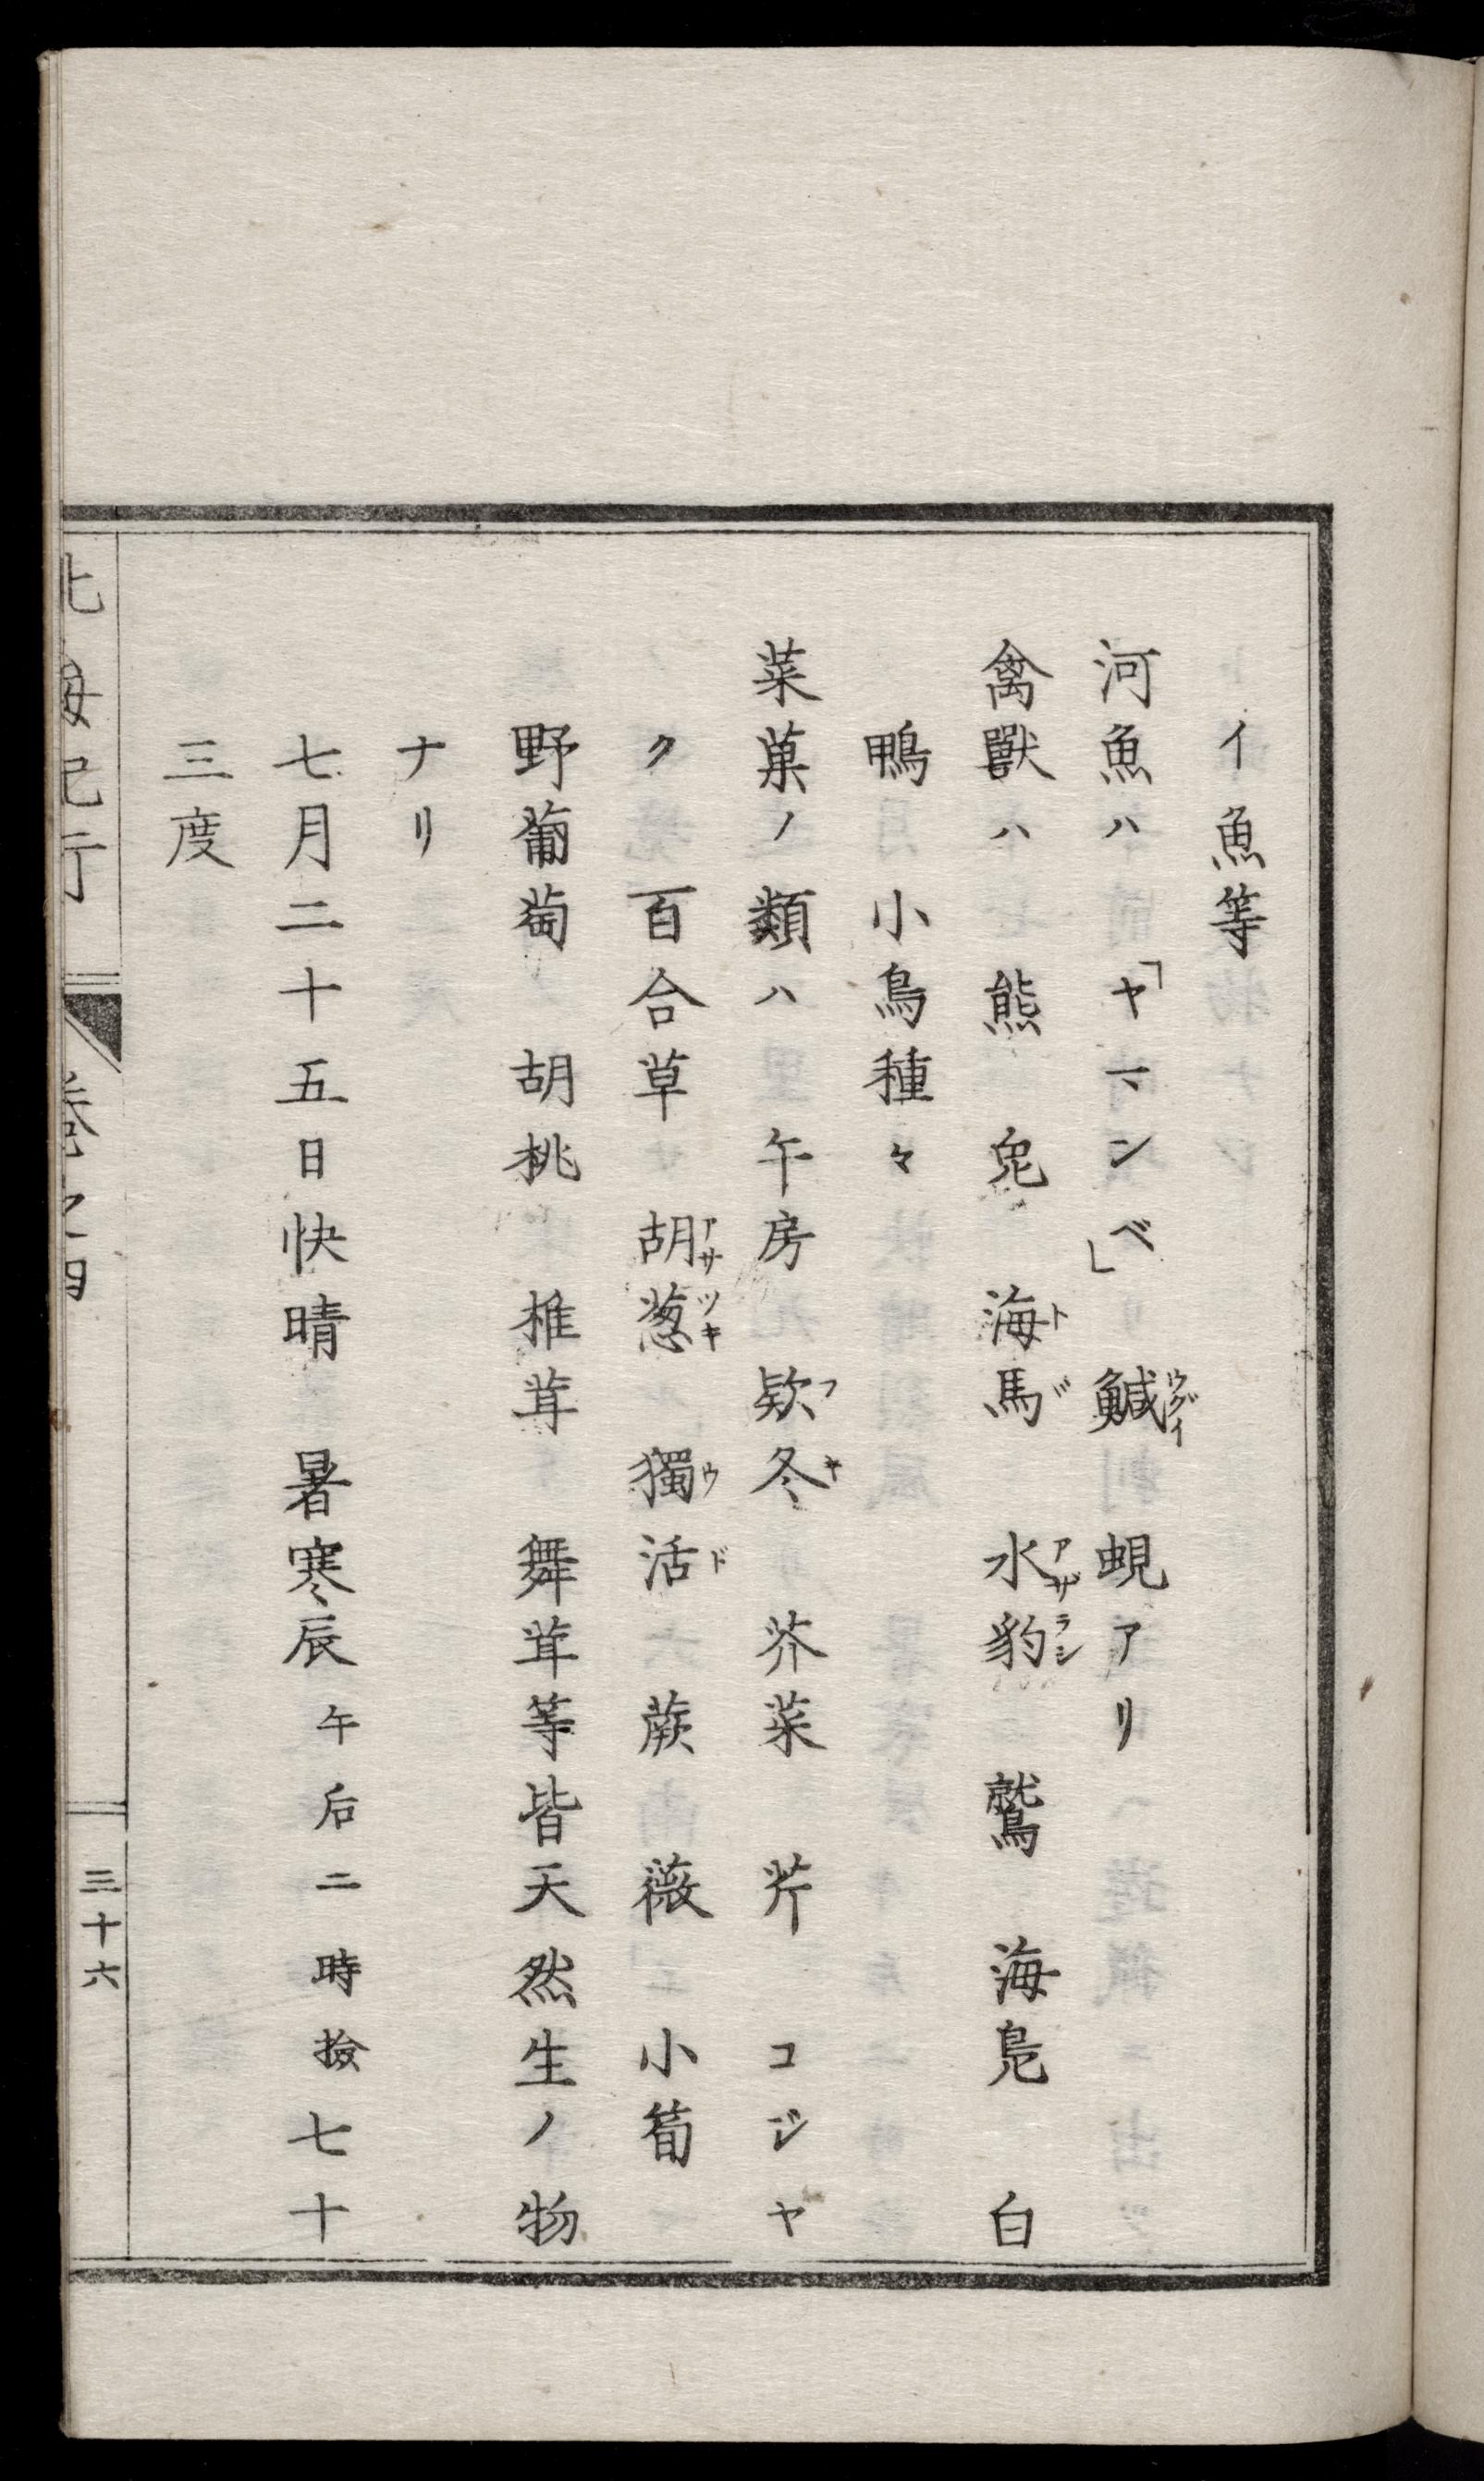 イ魚等
河魚ハ「ヤマンベ」　鰔ウグイ　蜆アリ
禽獸ハ　熊　兎　海馬トド　水豹アザラシ　鷲　海鳧　白
鴨　小鳥種々
菜菓ノ類ハ　午房　欵冬フキ　芥菜　芹　コジヤ
ク　百合草　胡葱アサツキ　獨活ウド　蕨　薇　小筍
野葡萄　胡桃　椎茸　舞茸等皆天然生ノ物
ナリ
七月二十五日快晴　暑寒辰午后二時撿七十
三度
北海紀行　卷之四　三十六